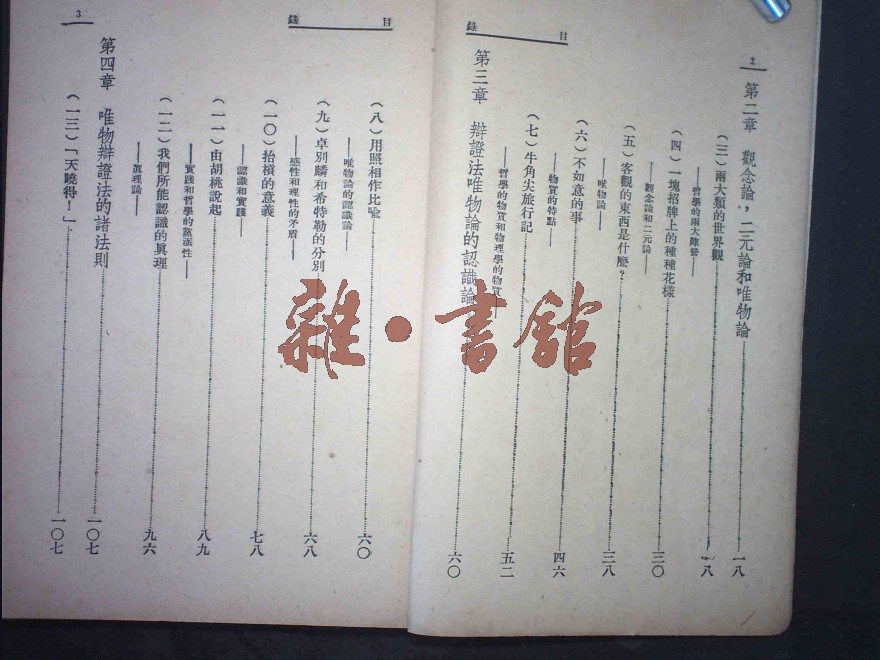 2
目錄
第二章 觀念論，二元論和唯物論 一八
（三）兩大類的世界觀 一八
——哲學的兩大陣營——
（四）一塊招牌上的種種花樣 三〇
——觀念論和二元論——
（五）客觀的東西是什麼？ 三八
——唯物論——
（六）不如意的事 四六
——物質的特點——
（七）牛角尖旅行記 五二
——哲學的物質和物理學的物質——
第三章 辯證法唯物論的認識論 六〇
目錄
3
（八）用照相作比喻 六〇
——唯物論的認識論——
（九）卓別麟和希特勒的分別 六八
——感性和理性的矛盾——
（一〇）抬槓的意義 七八
——認識和實踐——
（一一）由胡桃說起 八九
——實踐和哲學的黨派性——
（一二）我們所能認識的真理 九六
——真理論——
第四章 唯物辯證法的諸法則 一〇七
（一三）「天曉得！」 一〇七
雜·書館